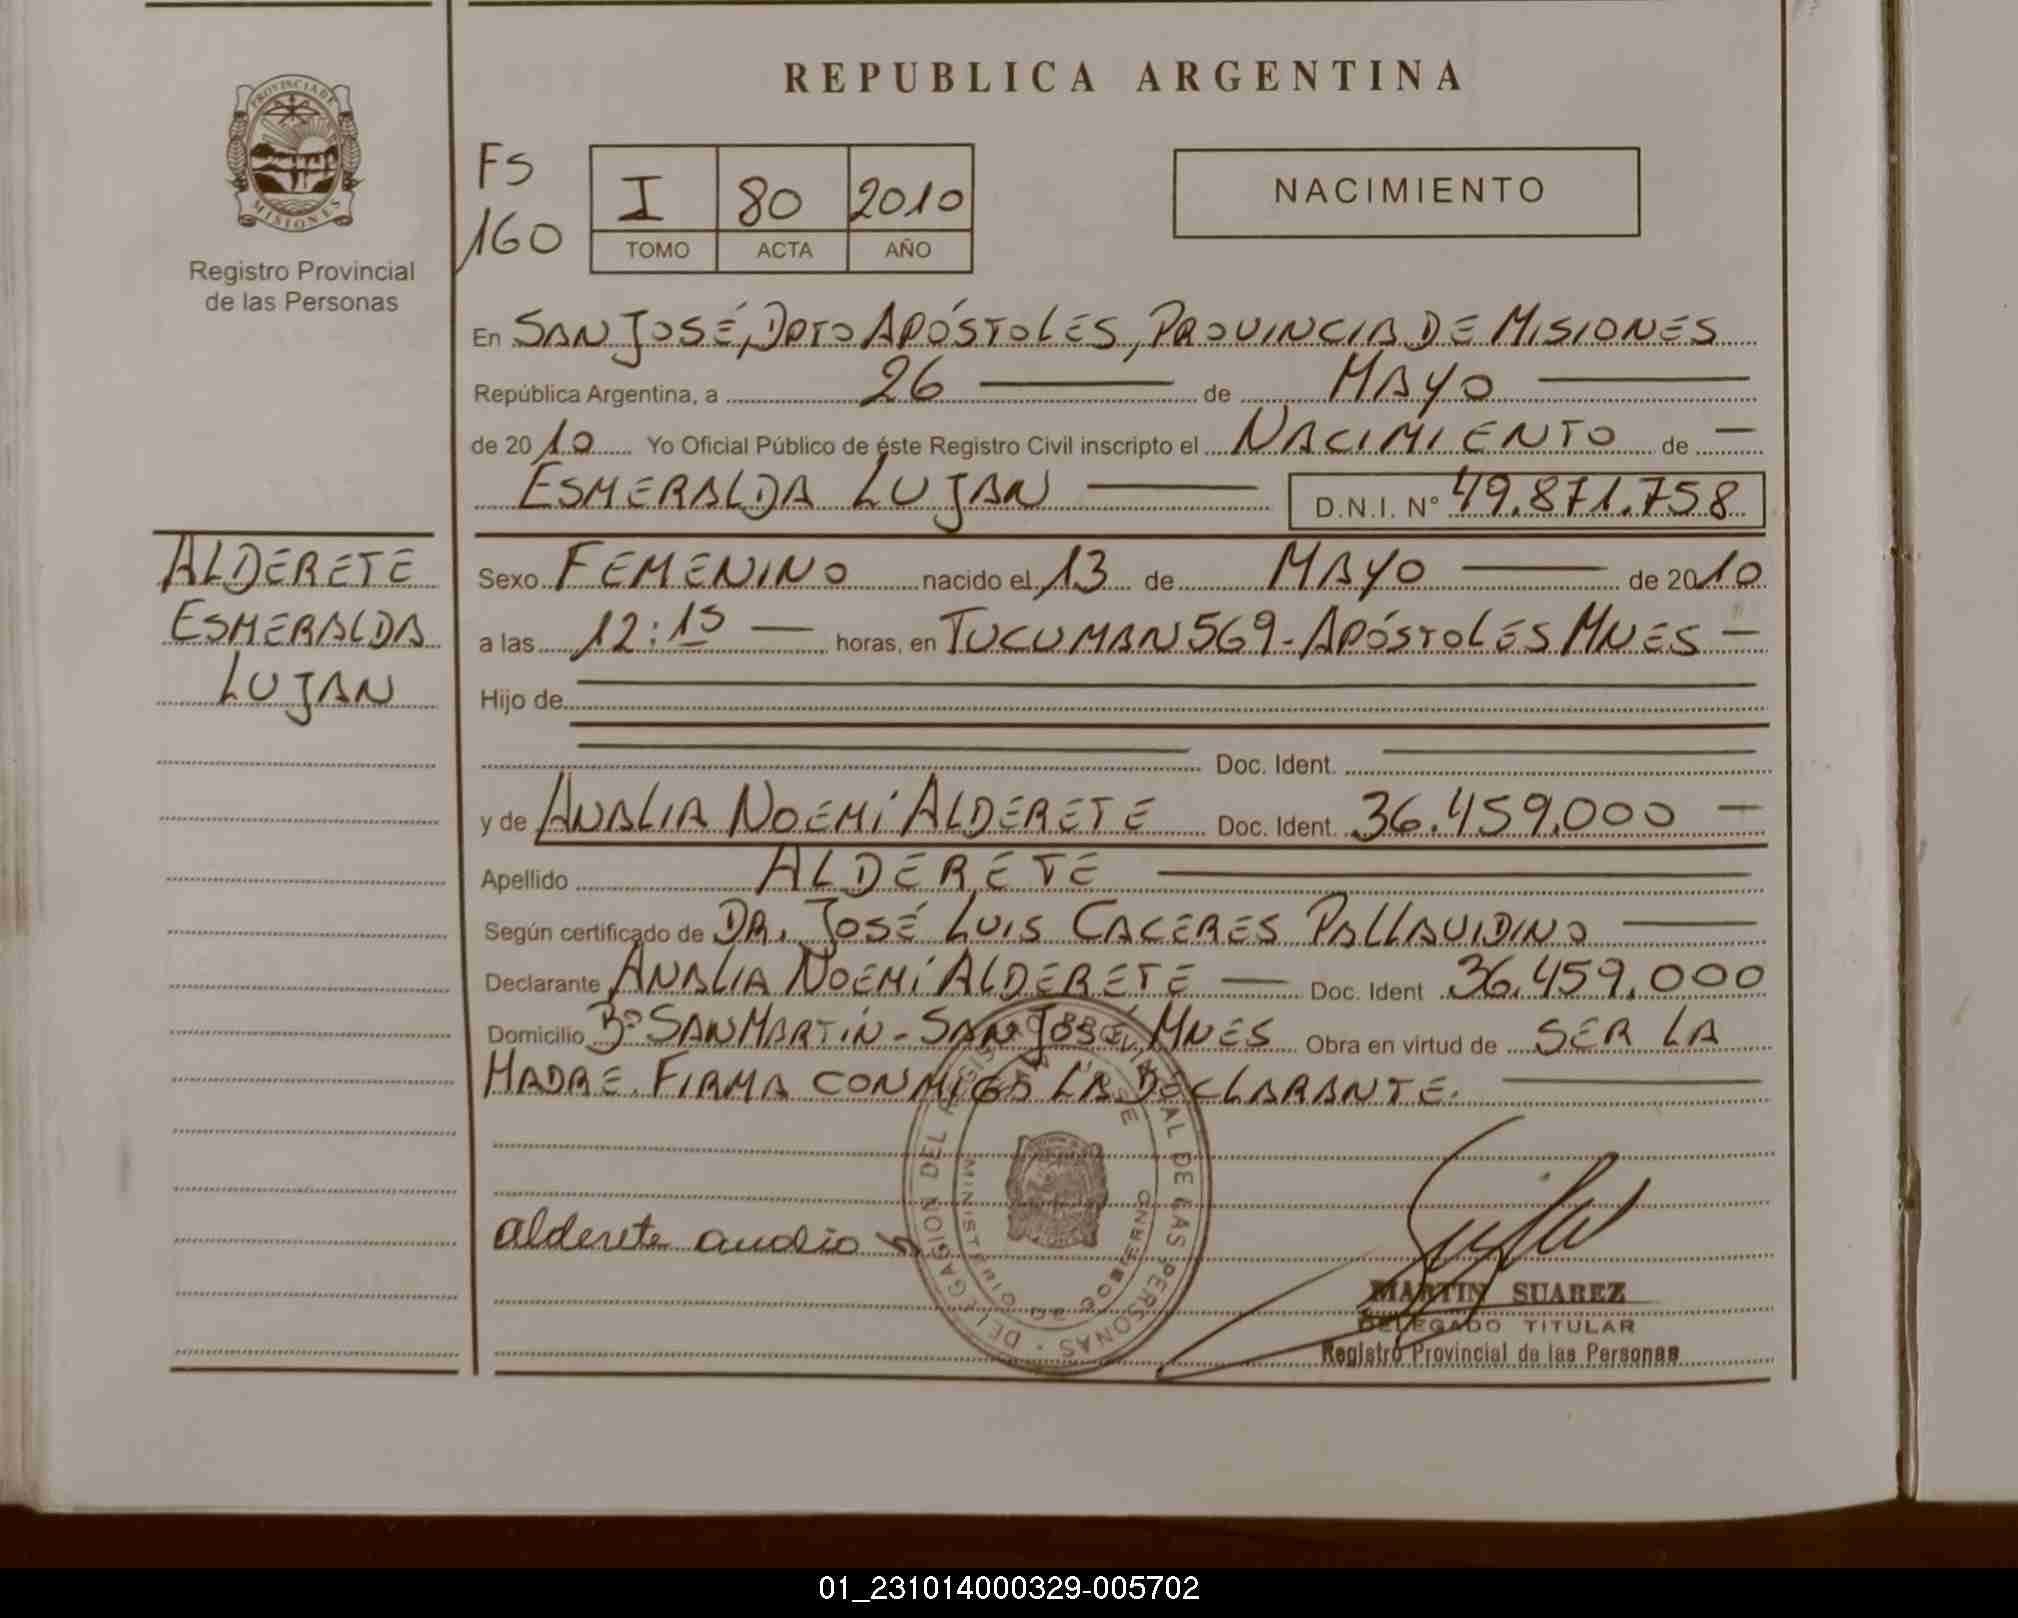 REPUBLICA ARGENTINA
PROVINCIA DE
MISIONES
Registro Provincial
de las Personas
FS
160
I 80 2010
TOMO ACTA AÑO
NACIMIENTO
En SAN JOSÉ, DPTO APÓSTOLES, PROVINCIA DE MISIONES
República Argentina, a 26 de MAYO
de 2010 Yo Oficial Público de éste Registro Civil inscripto el NACIMIENTO de
ESMERALDA LUJAN D.N.I. N° 49.871.758
ALDERETE
ESMERALDA
LUJAN
Sexo FEMENINO nacido el 13 de MAYO de 2010
a las 12:15 horas, en TUCUMAN 569 - APÓSTOLES MNES
Hijo de
Doc. Ident.
y de ANALIA NOEMÍ ALDERETE Doc. Ident. 36.459.000
Apellido ALDERETE
Según certificado de DR. JOSÉ LUIS CACERES PALLAVIDINO
Declarante ANALIA NOEMÍ ALDERETE Doc. Ident 36.459.000
Domicilio B° SAN MARTÍN - SAN JOSÉ, MNES Obra en virtud de SER LA
MADRE. FIRMA CONMIGO LA DECLARANTE.
DELEGACION DEL REGISTRO PROVINCIAL DE LAS PERSONAS
SAN JOSE
MINISTERIO DE GOBIERNO
alderete
MARTIN SUAREZ
DELEGADO TITULAR
Registro Provincial de las Personas
01_231014000329-005702